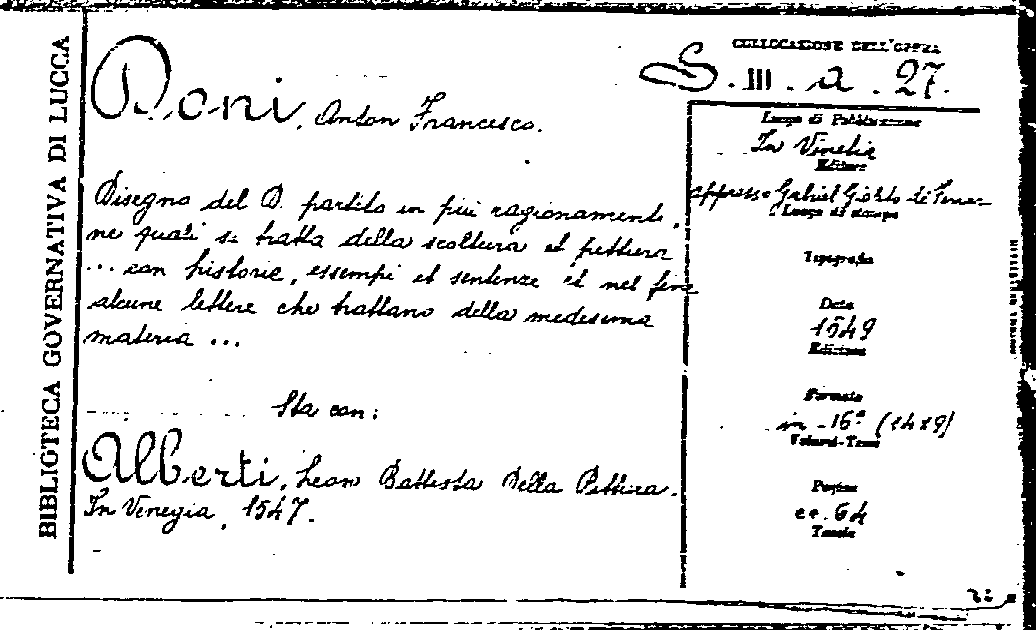 BIBLIOTECA GOVERNATIVA DI LUCCA
Doni, Anton Francesco.
Disegno del D. partito in più ragionamenti,
ne quali si tratta della scoltura et pittura
... con historie, essempi et sentenze et nel fine
alcune lettere che trattano della medesima
materia ...
Sta con:
Alberti, Leon Battista Della Pittura.
In Venegia, 1547.
COLLOCAZIONE DELL'OPERA
S. III. a. 27.
Luogo di Pubblicazione
In Venetia
Editore
appresso Gabriel Giolito di
Luogo di stampa
Tipografia
Data
1549
Edizione
Formato
in-16º (14x9)
Volumi-Tomi
Pagine
cc. 64
Tavole